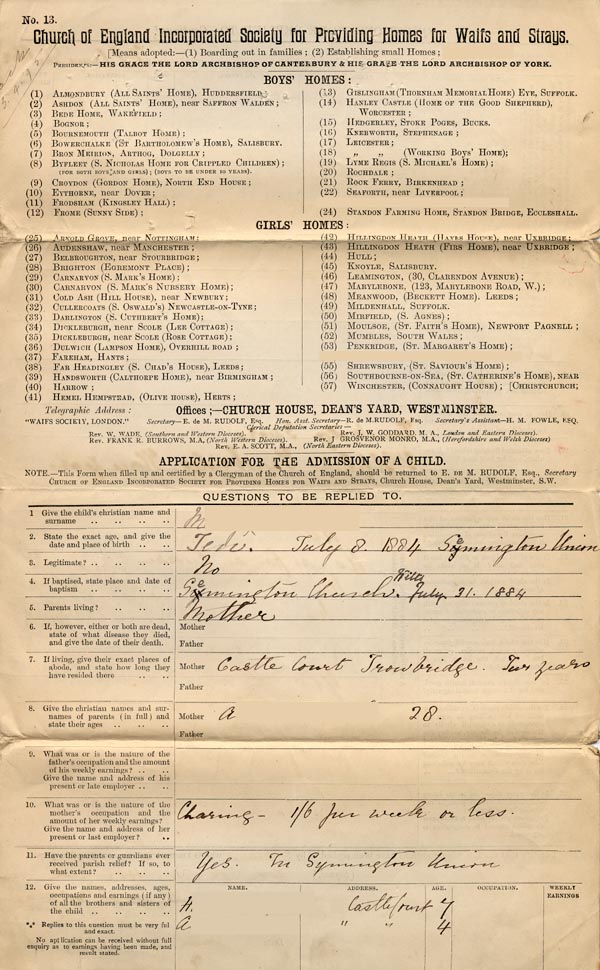 No. 13.
Church of England Incorporated Society for Providing Homes for Waifs and Strays.
[Means adopted:—(1) Boarding out in families; (2) Establishing small Homes;
PRESIDENTS:—HIS GRACE THE LORD ARCHBISHOP OF CANTERBURY & HIS GRACE THE LORD ARCHBISHOP OF YORK.
BOYS' HOMES:
(1) ALMONDBURY (ALL SAINTS' HOME), HUDDERSFIELD
(2) ASHDON (ALL SAINTS' HOME), near SAFFRON WALDEN;
(3) BEDE HOME, WAKEFIELD;
(4) BOGNOR;
(5) BOURNEMOUTH (TALBOT HOME);
(6) BOWERCHALKE (ST BARTHOLOMEW'S HOME), SALISBURY.
(7) BRON MEIRION, ARTHOG, DOLGELLY;
(8) BYFLEET (S. NICHOLAS HOME FOR CRIPPLED CHILDREN);
(FOR BOTH BOYS AND GIRLS; (BOYS TO BE UNDER 10 YEARS).
(9) CROYDON (GORDON HOME), NORTH END HOUSE;
(10) EYTHORNE, near DOVER;
(11) FRODSHAM (KINGSLEY HALL);
(12) FROME (SUNNY SIDE);
(13) GISLINGHAM (THORNHAM MEMORIAL HOME) EYE, SUFFOLK.
(14) HANLEY CASTLE (HOME OF THE GOOD SHEPHERD),
WORCESTER;
(15) HEDGERLEY, STOKE POGES, BUCKS.
(16) KNEBWORTH, STEPHENAGE;
(17) LEICESTER;
(18) „ „ (WORKING BOYS' HOME);
(19) LYME REGIS (S. MICHAEL'S HOME);
(20) ROCHDALE;
(21) ROCK FERRY, BIRKENHEAD;
(22) SEAFORTH, near LIVERPOOL;
(24) STANDON FARMING HOME, STANDON BRIDGE, ECCLESHALL.
GIRLS' HOMES:
(25) ARNOLD GROVE, near NOTTINGHAM;
(26) AUDENSHAW, near MANCHESTER;
(27) BELBROUGHTON, near STOURBRIDGE;
(28) BRIGHTON (EGREMONT PLACE);
(29) CARNARVON (S. MARK'S HOME);
(30) CARNARVON (S. MARK'S NURSERY HOME);
(31) COLD ASH (HILL HOUSE), near NEWBURY;
(32) CULLERCOATS (S. OSWALD'S) NEWCASTLE-ON-TYNE;
(33) DARLINGTON (S. CUTHBERT'S HOME);
(34) DICKLEBURGH, near SCOLE (LEE COTTAGE);
(35) DICKLEBURGH, near SCOLE (ROSE COTTAGE);
(36) DULWICH (LAMPSON HOME), OVERHILL ROAD;
(37) FAREHAM, HANTS;
(38) FAR HEADINGLEY (S. CHAD'S HOUSE), LEEDS;
(39) HANDSWORTH (CALTHORPE HOME), near BIRMINGHAM;
(40) HARROW;
(41) HEMEL HEMPSTEAD, (OLIVE HOUSE), HERTS;
(42) HILLINGDON HEATH (HAYES HOUSE), near UXBRIDGE;
(43) HILLINGDON HEATH (FIRS HOME), near UXBRIDGE;
(44) HULL;
(45) KNOYLE, SALISBURY.
(46) LEAMINGTON, (30, CLARENDON AVENUE);
(47) MARYLEBONE, (123, MARYLEBONE ROAD, W.);
(48) MEANWOOD, (BECKETT HOME), LEEDS;
(49) MILDENHALL, SUFFOLK.
(50) MIRFIELD, (S. AGNES);
(51) MOULSOE, (ST. FAITH'S HOME), NEWPORT PAGNELL;
(52) MUMBLES, SOUTH WALES;
(53) PENKRIDGE, (ST. MARGARET'S HOME);
(55) SHREWSBURY, (ST. SAVIOUR'S HOME);
(56) SOUTHBOURNE-ON-SEA, (ST. CATHERINE'S HOME), NEAR
(57) WINCHESTER, (CONNAUGHT HOUSE); [CHRISTCHURCH;
Telegraphic Address: Offices:—CHURCH HOUSE, DEAN'S YARD, WESTMINSTER.
"WAIFS SOCIETY, LONDON." Secretary—E. de M. RUDOLF, Esq. Hon. Asst. Secretary—R. de M. RUDOLF, Esq. Secretary's Assistant—H. M. FOWLE, ESQ.
Clerical Deputation Secretaries—
Rev. W. WADE, (Southern and Western Dioceses). Rev. J. W. GODDARD, M.A., (London and Eastern Dioceses).
Rev. FRANK R. BURROWS, M.A, (North Western Dioceses). Rev. J GROSVENOR MONRO, M.A., (Herefordshire and Welsh Dioceses).
Rev. E. A. SCOTT, M.A., (North Eastern Dioceses).
APPLICATION FOR THE ADMISSION OF A CHILD.
NOTE.—This Form when filled up and certified by a Clergyman of the Church of England, should be returned to E. DE M. RUDOLF, Esq., Secretary
CHURCH OF ENGLAND INCORPORATED SOCIETY FOR PROVIDING HOMES FOR WAIFS AND STRAYS, Church House, Dean's Yard, Westminster, S.W.
QUESTIONS TO BE REPLIED TO.
1 Give the child's christian name and
surname
M
2. State the exact age, and give the
date and place of birth
July 8. 1884 Semington Union
3. Legitimate?
No
4. If baptised, state place and date of
baptism
Semington Church. Wilts July 31. 1884
5. Parents living?
Mother
6. If, however, either or both are dead,
state of what disease they died,
and give the date of their death.
Mother
Father
7. If living, give their exact places of
abode, and state how long they
have resided there
Mother Castle Court Trowbridge. Two years
Father
8. Give the christian names and sur-
names of parents (in full) and
state their ages
Mother A 28.
Father
9. What was or is the nature of the
father's occupation and the amount
of his weekly earnings?
Give the name and address of his
present or late employer
10. What was or is the nature of the
mother's occupation and the
amount of her weekly earnings?
Give the name and address of her
present or last employer?
Charing — 1/6 per week or less.
11. Have the parents or guardians ever
received parish relief? If so, to
what extent?
Yes. In Symington Union
12. Give the names, addresses, ages,
occupations and earnings (if any)
of all the brothers and sisters of
the child
*** Replies to this question must be very full
and exact.
No application can be received without full
enquiry as to earnings having been made, and
result stated.
NAME. ADDRESS. AGE. OCCUPATION. WEEKLY EARNINGS
H. Castle Court 7
A " " 4